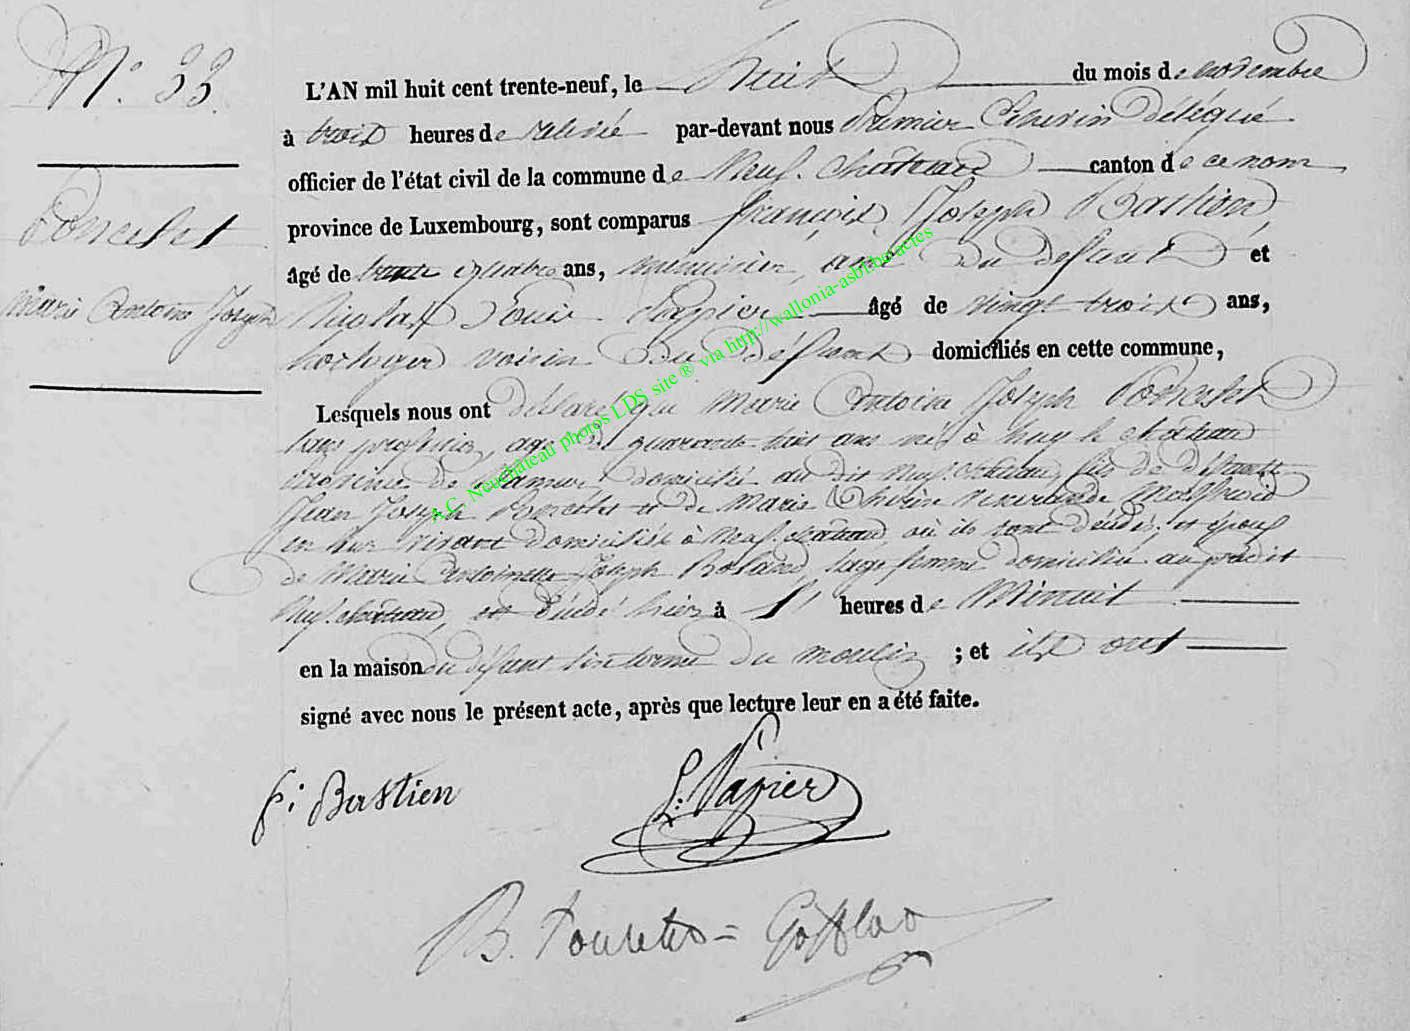 N.° 33.
Poncelet
Marie Antoine Joseph
L'AN mil huit cent trente-neuf, le huit du mois de novembre
à trois heures de relevée par-devant nous Premier Echevin délégué
officier de l'état civil de la commune de Neuf-château canton de ce nom
province de Luxembourg, sont comparus françois Joseph Bastien
âgé de trente quatre ans, menuisier, ami du defunt et
Nicolas Louis Papier âgé de vingt trois ans,
horloger voisin du défunt domiciliés en cette commune,
Lesquels nous ont déclaré que Marie Antoine Joseph Poncelet
sans profession, agé de quarante huit ans né à
province de Namur domicilié au dit Neufchateau, fils de défunts
Jean Joseph Poncelet et de Marie
en leur vivant domiciliés à Neufchateau où ils sont décédés, et époux
de Marie Antoinette Joseph Roland sage femme domiciliée au prédit
Neufchateau, est décédé hier à heures de Minuit
en la maison du défunt du moulin ; et ils ont
signé avec nous le présent acte, après que lecture leur en a été faite.
f: Bastien
L. Papier
B.
A.C. Neuchâteau photos LDS site ® via http://wallonia-asbl.be/actes